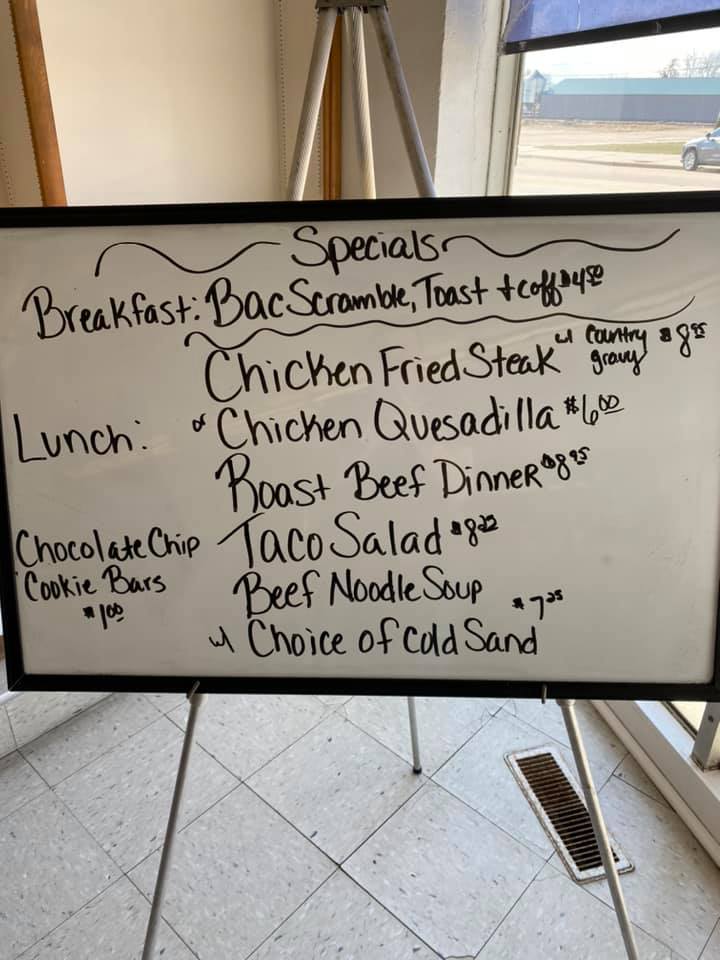 Specials
Breakfast: Bac Scramble, Toast + coff $4.50
Chicken Fried Steak w/ Country gravy $8.95
Lunch: or Chicken Quesadilla $6.00
Roast Beef Dinner $8.95
Chocolate Chip Taco Salad
Cookie Bars Beef Noodle Soup $7.25
$1.00
w/ Choice of Cold Sand